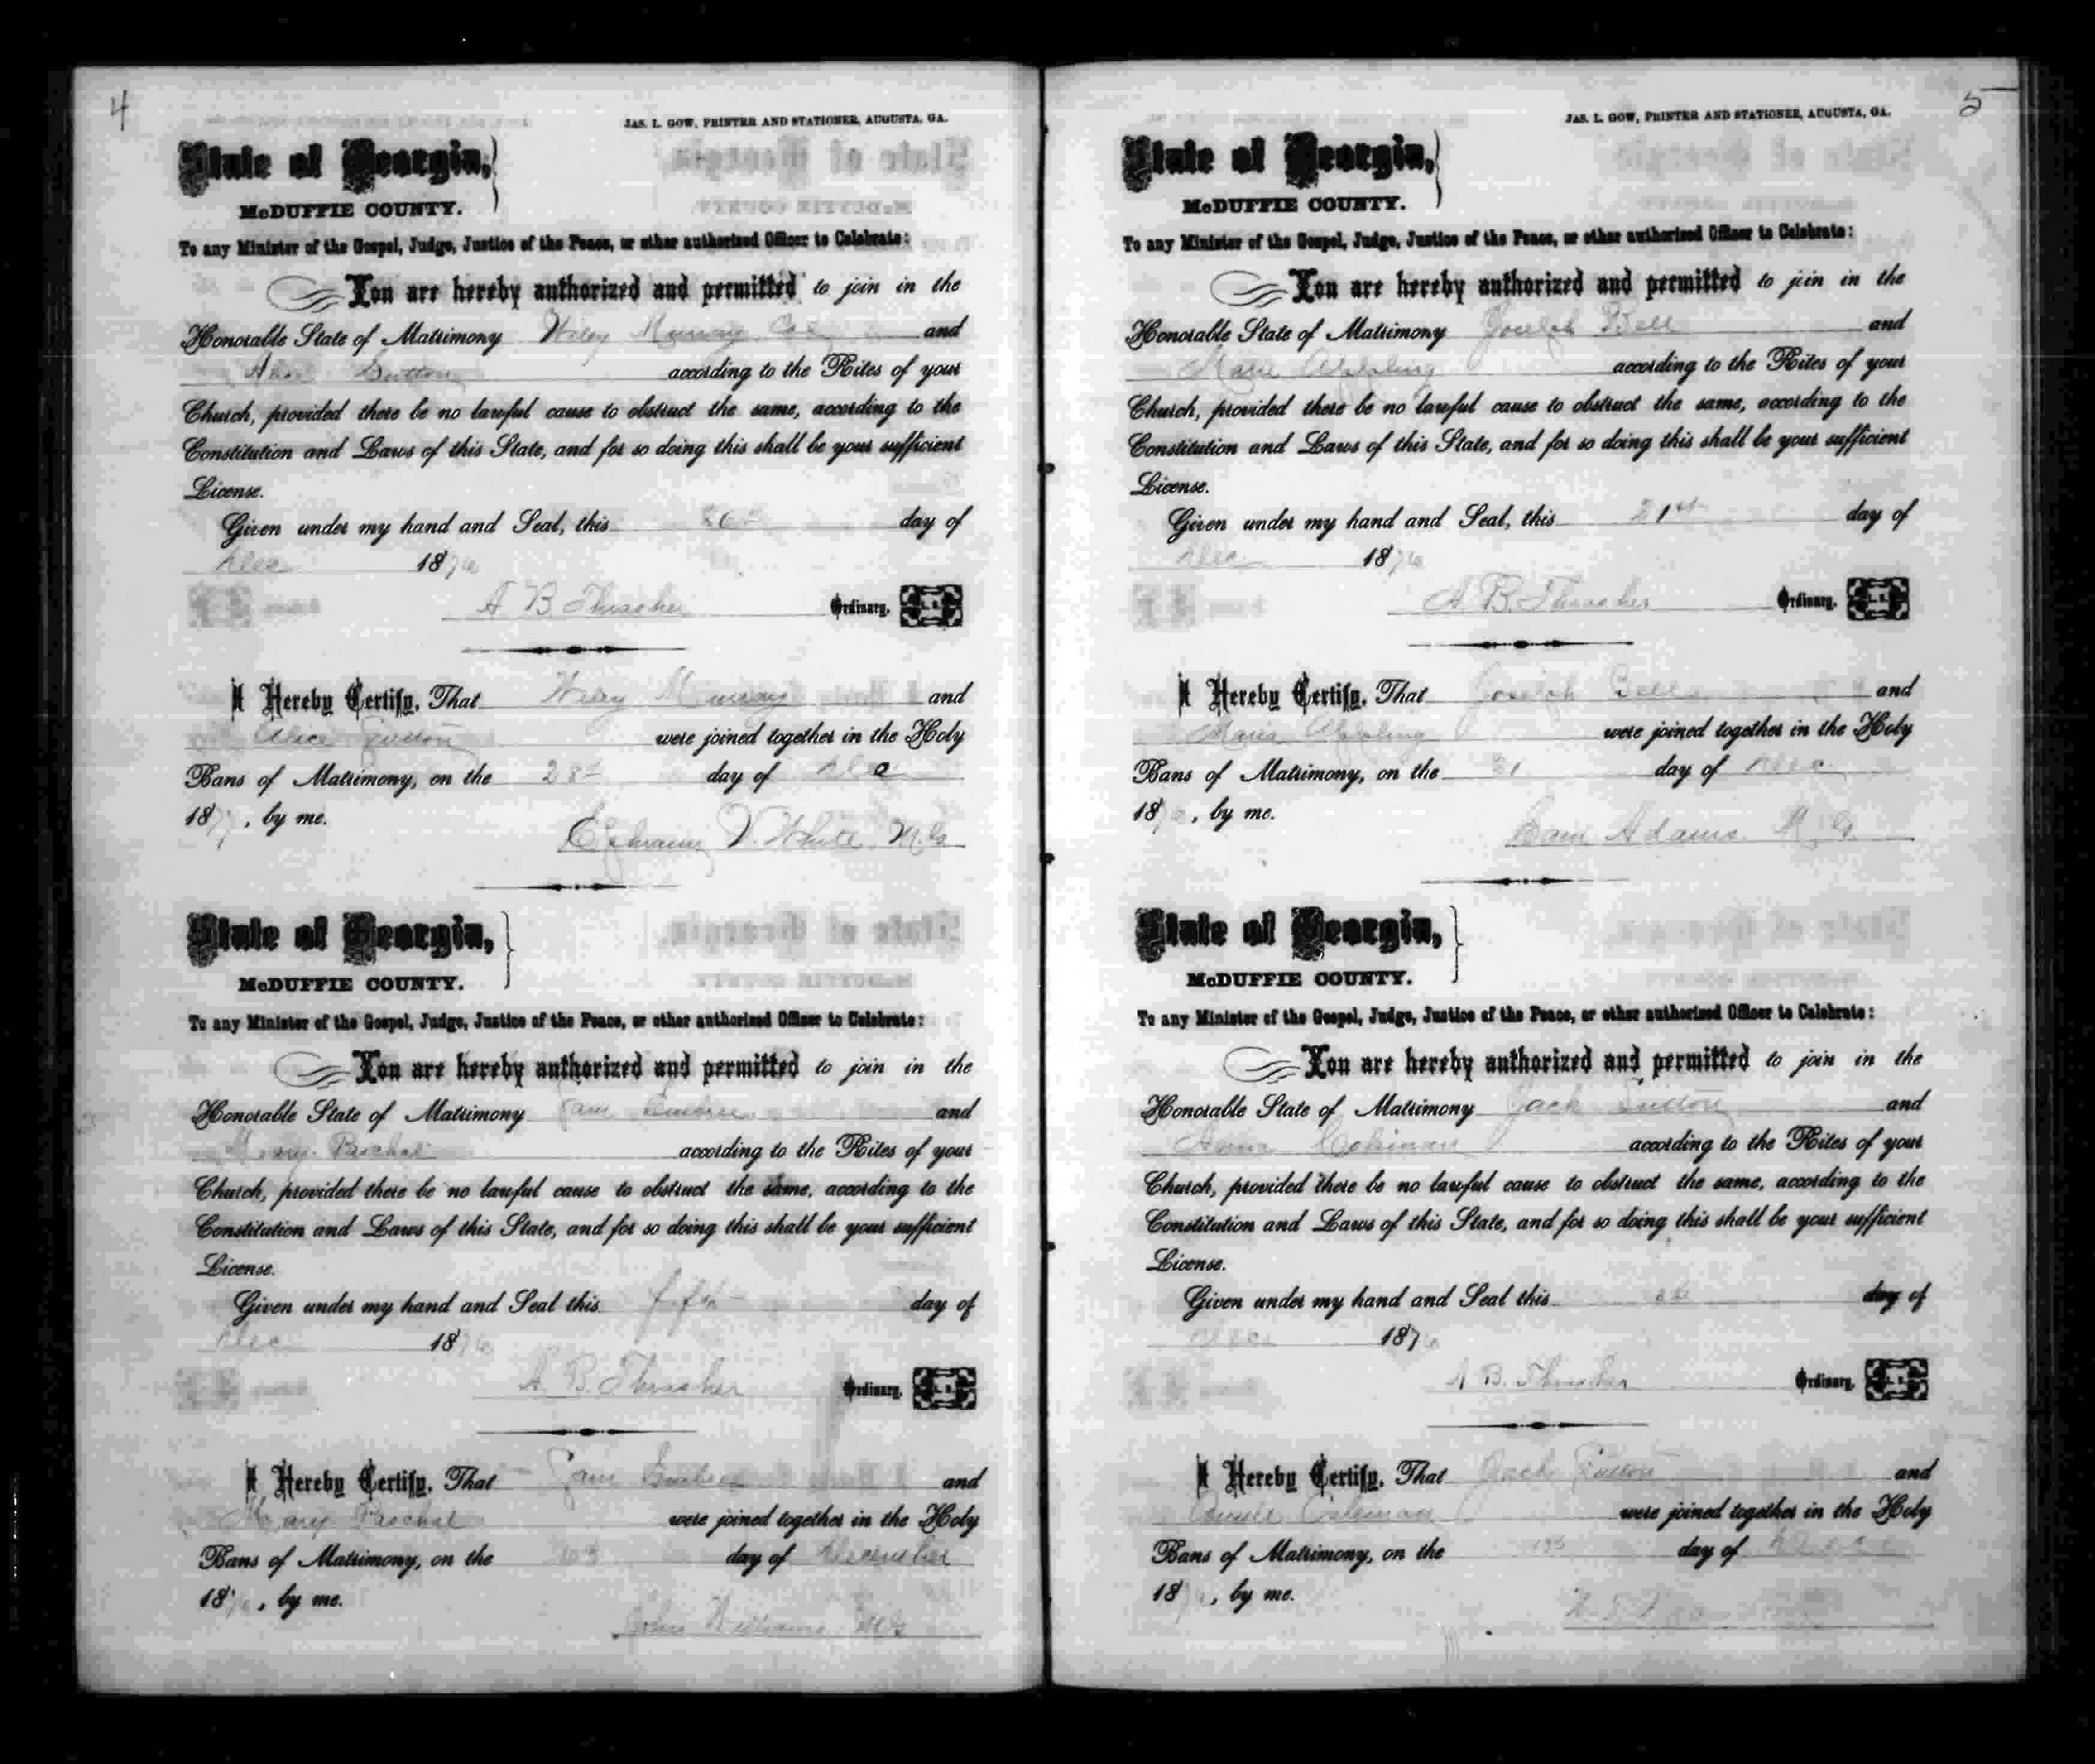 4
JAS. L. GOW, PRINTER AND STATIONER, AUGUSTA, GA.
State of Georgia,
McDUFFIE COUNTY.
To any Minister of the Gospel, Judge, Justice of the Peace, or other authorized Officer to Celebrate:
You are hereby authorized and permitted to join in the
Honorable State of Matrimony Wiley Murray Col and
Sutton according to the Rites of your
Church, provided there be no lawful cause to obstruct the same, according to the
Constitution and Laws of this State, and for so doing this shall be your sufficient
License.
Given under my hand and Seal, this 26 day of
Dec 1876
A B. Thrasher Ordinary. L. S.
I Hereby Certify, That Wiley Murray and
Alice Sutton were joined together in the Holy
Bans of Matrimony, on the 28 day of Dec
187 , by me.
Ephraim V. White, M.G.
State of Georgia,
McDUFFIE COUNTY.
To any Minister of the Gospel, Judge, Justice of the Peace, or other authorized Officer to Celebrate:
You are hereby authorized and permitted to join in the
Honorable State of Matrimony Sam Embree and
Mary Paschal according to the Rites of your
Church, provided there be no lawful cause to obstruct the same, according to the
Constitution and Laws of this State, and for so doing this shall be your sufficient
License.
Given under my hand and Seal this day of
Dec 1876
A. B. Thrasher Ordinary. L. S.
I Hereby Certify, That Sam Embree and
Mary Paschal were joined together in the Holy
Bans of Matrimony, on the day of December
1876, by me.
John Williams MG
5
JAS. L. GOW, PRINTER AND STATIONER, AUGUSTA, GA.
State of Georgia,
McDUFFIE COUNTY.
To any Minister of the Gospel, Judge, Justice of the Peace, or other authorized Officer to Celebrate:
You are hereby authorized and permitted to join in the
Honorable State of Matrimony Joseph Bell and
Maria Appling according to the Rites of your
Church, provided there be no lawful cause to obstruct the same, according to the
Constitution and Laws of this State, and for so doing this shall be your sufficient
License.
Given under my hand and Seal, this 21st day of
Dec 1876
A. B. Thrasher Ordinary. L. S.
I Hereby Certify, That Joseph Bell and
Maria Appling were joined together in the Holy
Bans of Matrimony, on the 31 day of Dec
187 , by me.
Sam Adams M. G.
State of Georgia,
McDUFFIE COUNTY.
To any Minister of the Gospel, Judge, Justice of the Peace, or other authorized Officer to Celebrate:
You are hereby authorized and permitted to join in the
Honorable State of Matrimony Jack Sutton and
Coleman according to the Rites of your
Church, provided there be no lawful cause to obstruct the same, according to the
Constitution and Laws of this State, and for so doing this shall be your sufficient
License.
Given under my hand and Seal this 26 day of
Dec 1876
A B. Thrasher Ordinary. L. S.
I Hereby Certify, That Jack Sutton and
Coleman were joined together in the Holy
Bans of Matrimony, on the day of
187 , by me.